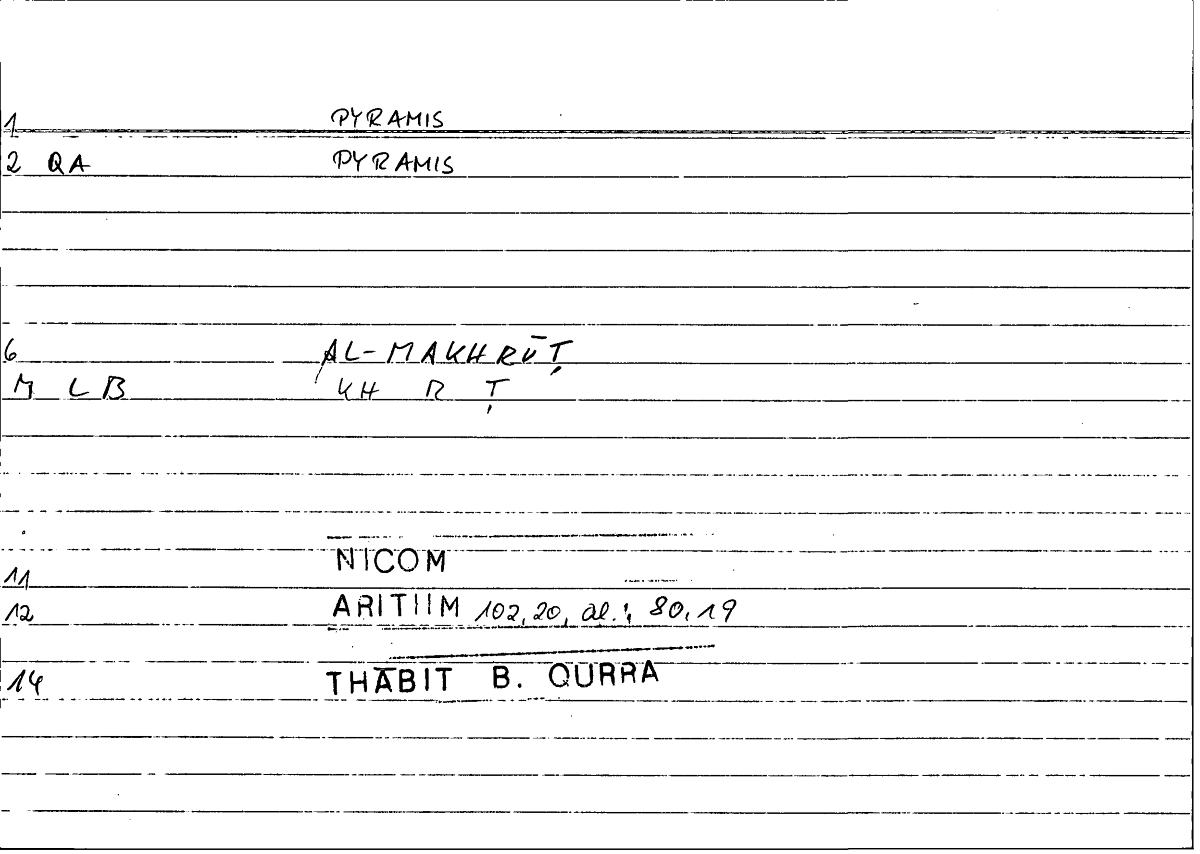 1 PYRAMIS
2 QA PYRAMIS
6 AL-MAKHRŪṬ
M L B KH R Ṭ
11 NICOM
12 ARITIIM 102,20, al.; 80,19
14 THĀBIT B. QURRA